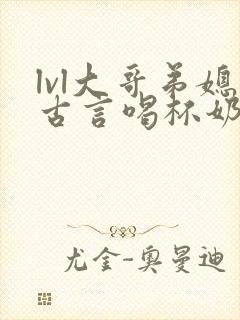 lvl大哥弟媳
古言喝杯奶
尤金-奥曼迪